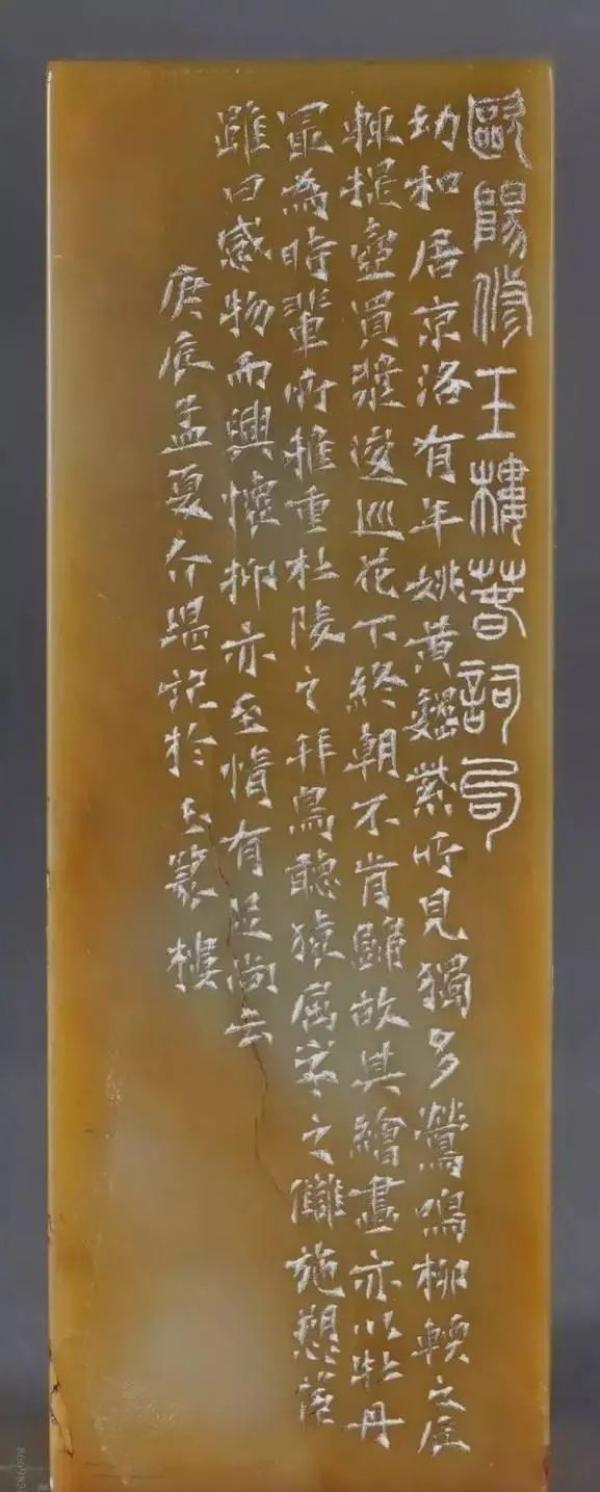 歐陽修玉樓春詞句
幼和居京洛有年姚黃魏紫所見獨多鶯鳴柳輭之座
輒提壺買漿逡巡花下終朝不肯歸故其繪畫亦以牡丹
最為時輩所推重杜陵之拜鳥聽猿屈宋之儺施愁
雖曰感物而興懷抑亦至情有足尚云
庚辰孟夏介堪記於篆樓